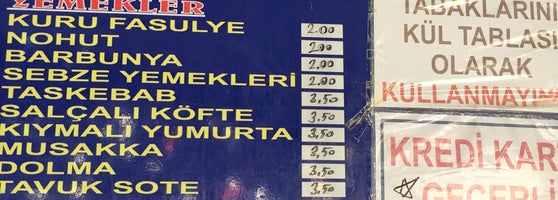 YEMEKLER
KURU FASULYE 2.00
NOHUT 2.00
BARBUNYA 2.00
SEBZE YEMEKLERİ 2.00
TASKEBAB 3,50
SALÇALI KÖFTE 3,50
KIYMALI YUMURTA 3,50
MUSAKKA 3,50
DOLMA 3,50
TAVUK SOTE 3,50
TABAKLARINI
KÜL TABLASI
OLARAK
KÜLLANMAYIN
KREDİ KAR
GEÇERLİ